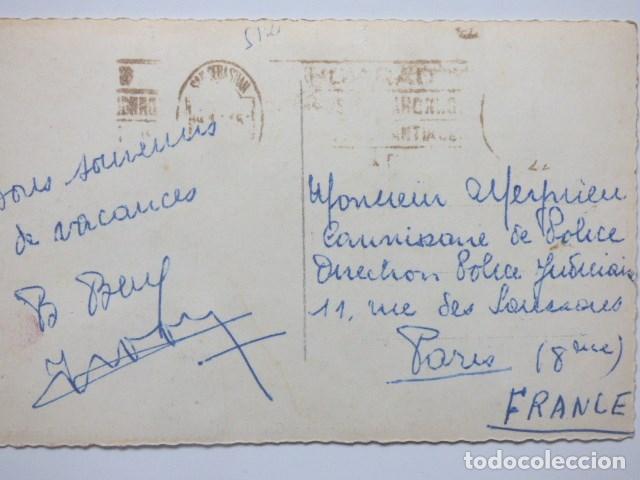 SAN SEBASTIAN
Bons souvenirs
de vacances
B
Monsieur Meynieu
Commissaire de Police
Direction Police Judiciai
11, rue des Saussaies
Paris (8eme)
FRANCE
todocoleccion.net